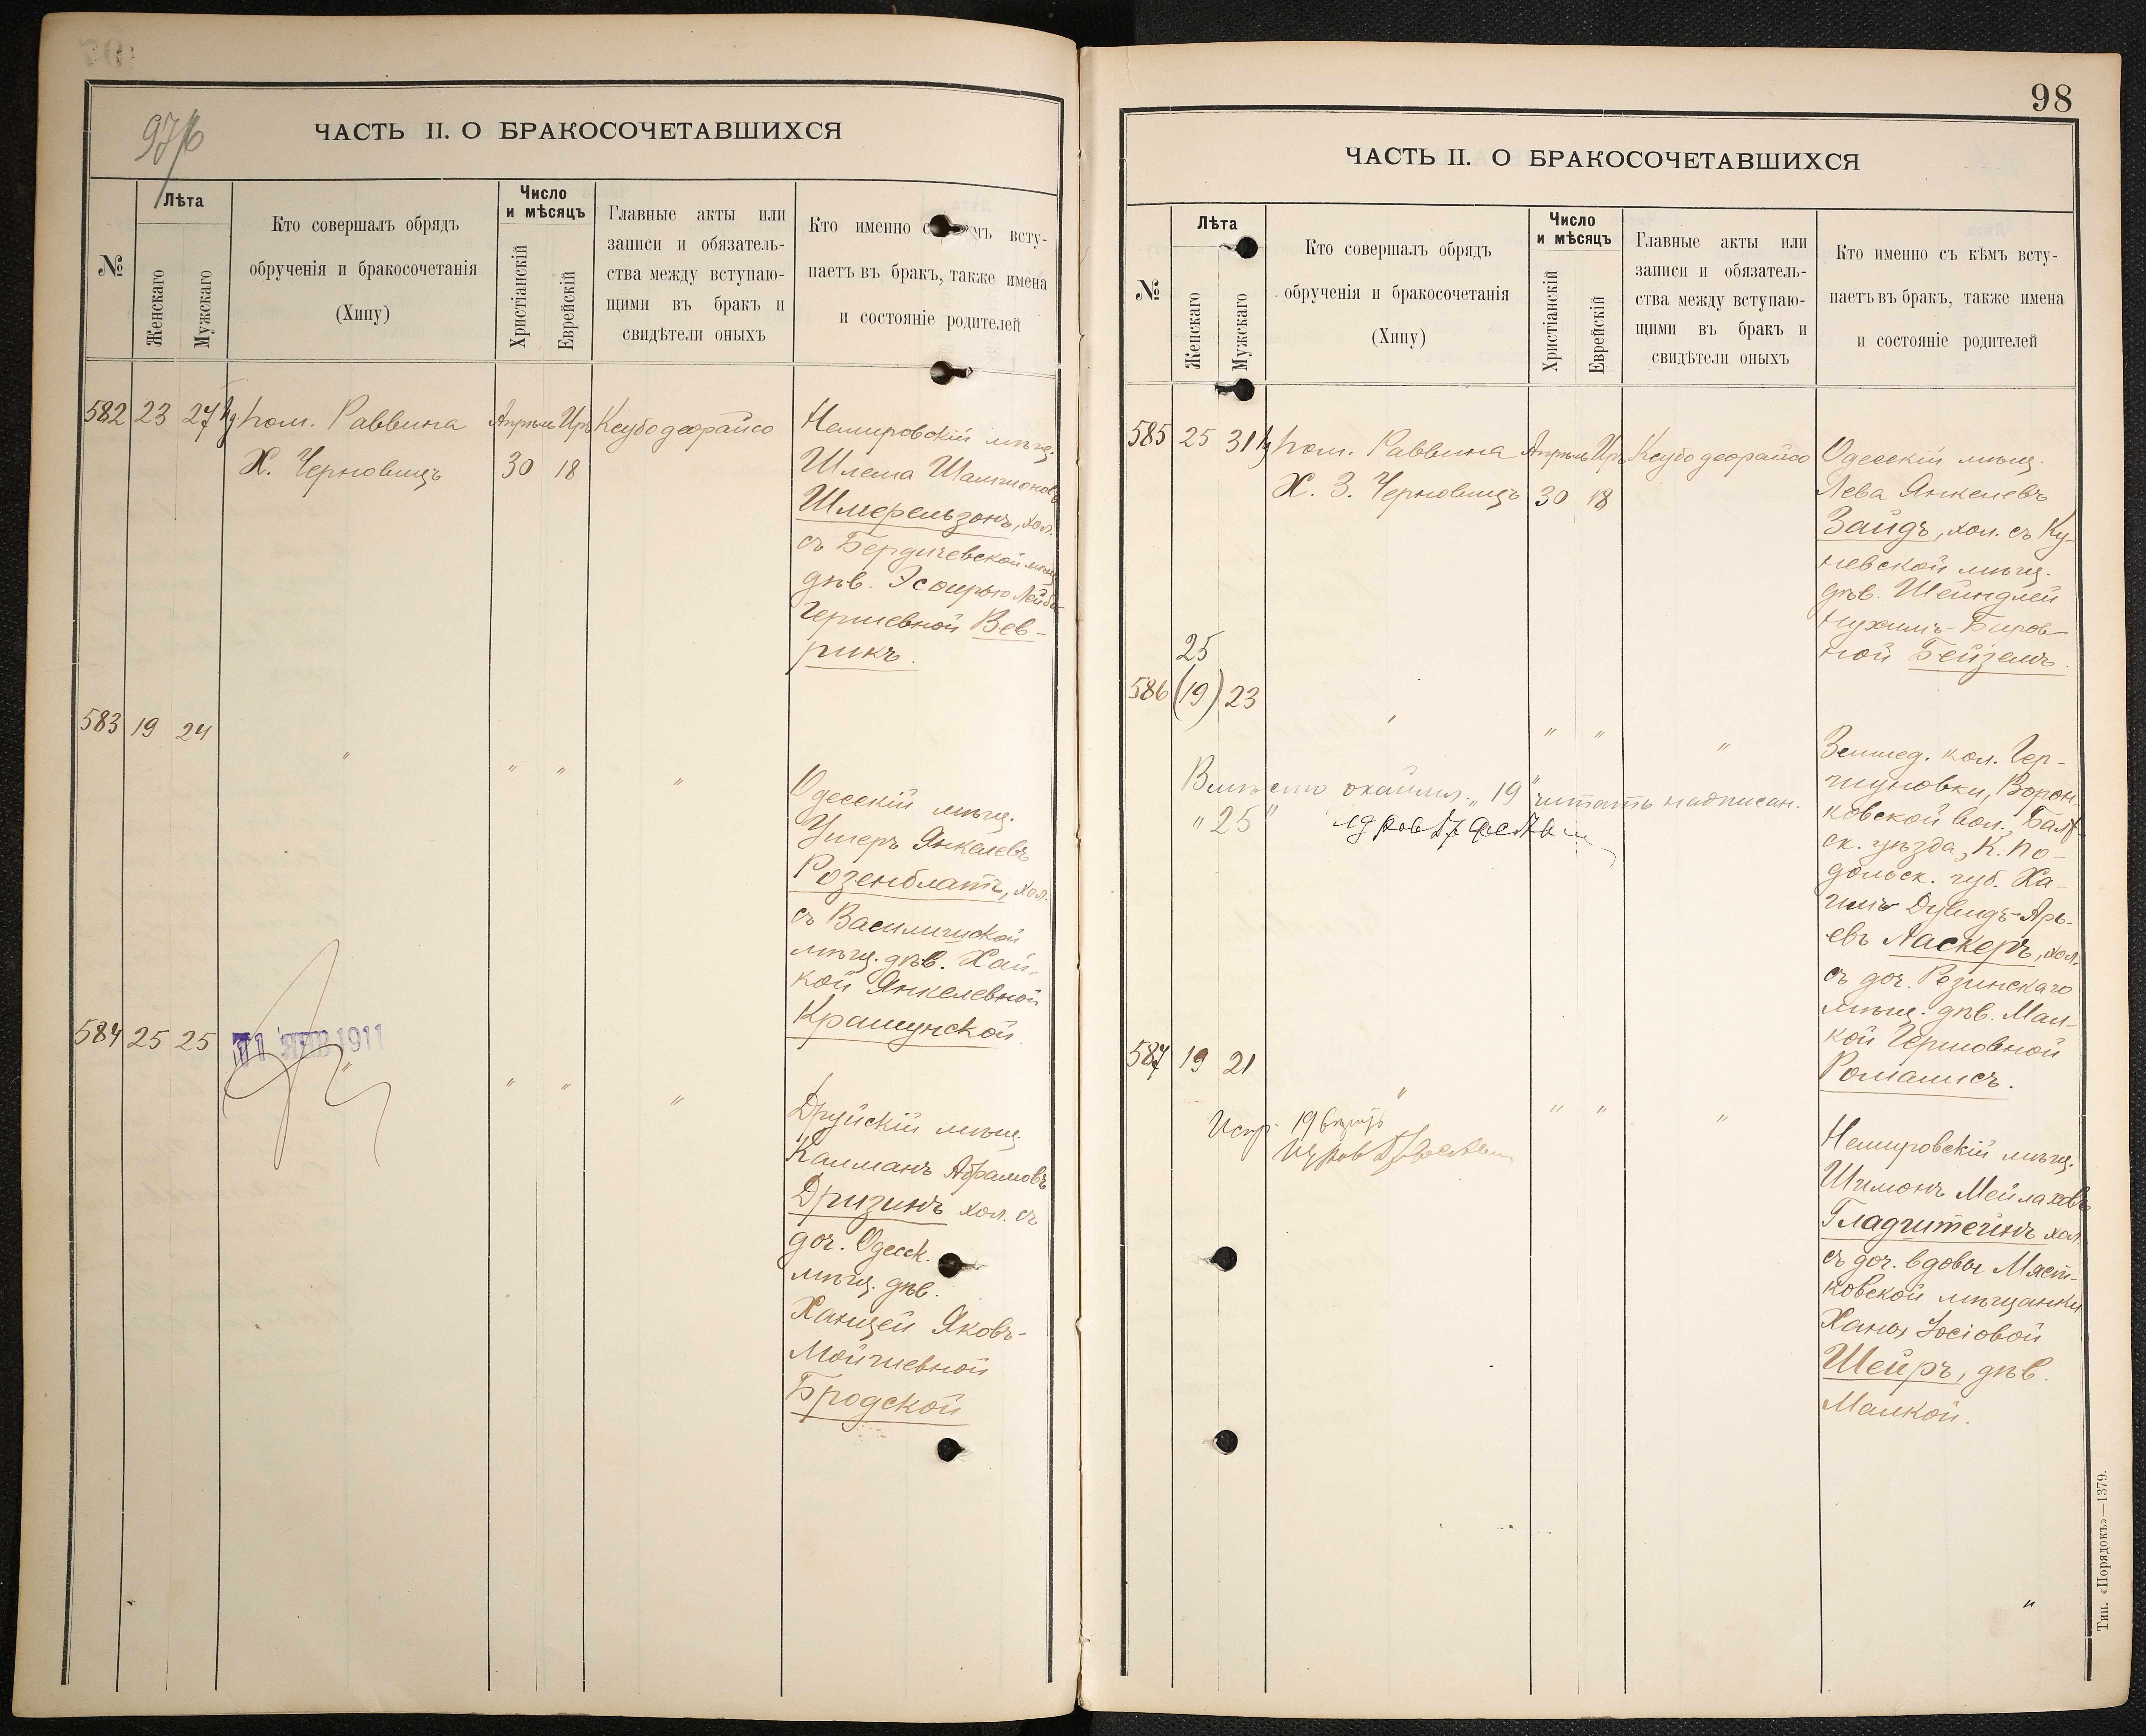 97/б
ЧАСТЬ II. О БРАКОСОЧЕТАВШИХСЯ
№
Лѣта
Женскаго
Мужскаго
Кто совершалъ обрядъ
обрученія и бракосочетанія
(Хипу)
Число
и мѣсяцъ
Христіанскій
Еврейскій
Главные акты или
записи и обязатель-
ства между вступаю-
щими въ бракъ и
свидѣтели оныхъ
Кто именно съ кѣмъ всту-
паетъ въ бракъ, также имена
и состояніе родителей
582 23 27 пом. Раввина Апрѣль Иръ Ксубо деорайсо
Х. Черновицъ 30 18
Немировскій мѣщ.
Шлема Шамшоновъ
Шмерельзонъ, хол.
съ Бердичевской мѣщ.
дѣв. Эсѳирью Лейба-
Гершевной Вев-
рикъ.
583 19 24 " " " "
Одесскій мѣщ.
Ушеръ Янкелевъ
Розенблатъ, хол.
съ Василишской
мѣщ. дѣв. Хай-
кой Янкелевной
Крашунской.
584 25 25 " " " "
11 ЯНВ 1911
Друйскій мѣщ.
Калманъ Абрамовъ
Дризинъ хол. съ
доч. Одесск.
мѣщ. дѣв.
Ханцей Яковъ-
Мойшевной
Бродской
98
ЧАСТЬ II. О БРАКОСОЧЕТАВШИХСЯ
№
Лѣта
Женскаго
Мужскаго
Кто совершалъ обрядъ
обрученія и бракосочетанія
(Хипу)
Число
и мѣсяцъ
Христіанскій
Еврейскій
Главные акты или
записи и обязатель-
ства между вступаю-
щими въ бракъ и
свидѣтели оныхъ
Кто именно съ кѣмъ всту-
паетъ въ бракъ, также имена
и состояніе родителей
585 25 31 пом. Раввина Апрѣль Иръ Ксубо деорайсо
Х. З. Черновицъ 30 18
Одесскій мѣщ.
Лева Янкелевъ
Зайдъ, хол. съ Ку-
невской мѣщ.
дѣв. Шейндлей
Нухимъ-Беров-
ной Бейземъ.
25
586 (19) 23 " " " "
Вмѣсто окаймл. "19" читать надписан.
"25"
Землед. кол. Гер-
шуновки, Ворон-
ковской вол., Балт-
ск. уѣзда, К. По-
дольск. губ. Ха-
имъ Дувидъ-Арь-
евъ Ласкеръ, хол.
съ доч. Резинскаго
мѣщ. дѣв. Мал-
кой Гершовной
Ромалисъ.
587 19 21 " " " "
Испр. 19
Немировскій мѣщ.
Шимонъ Мейлаховъ
Гладштейнъ хол.
съ доч. вдовы Мяст-
ковской мѣщанки
Ханы Іосіовой
Шейръ, дѣв.
Малкой.
Тип. «Порядокъ»—1379.